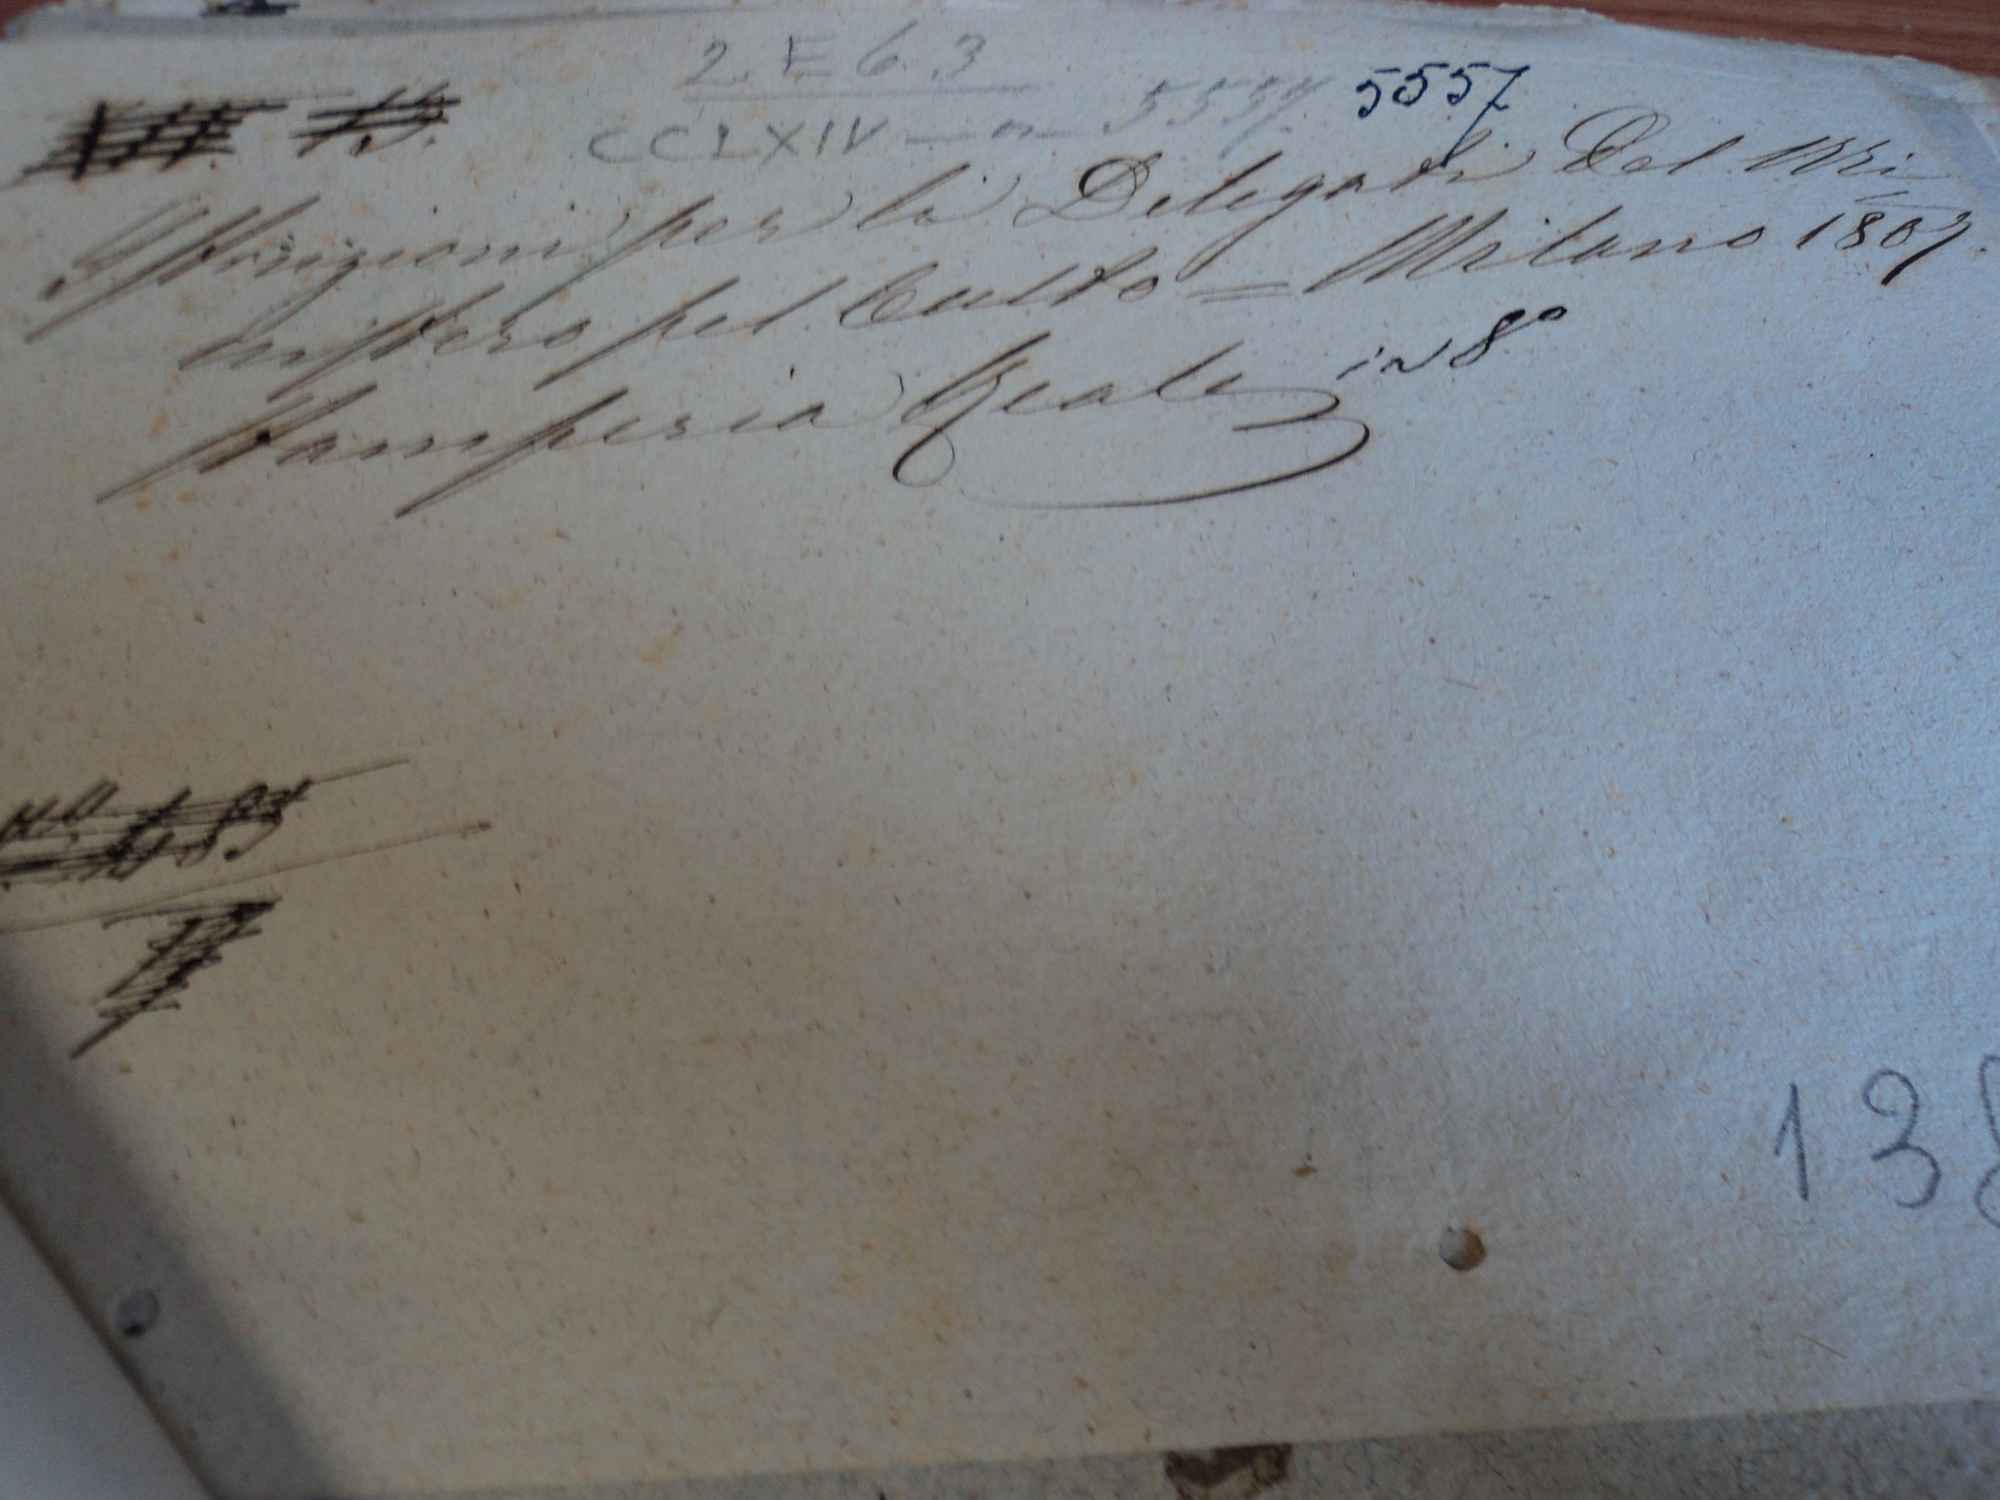 2. E 6. 3
CCLXIV — n — 5557 5557
Istruzioni per li Delegati Del Mi-
nistero pel Culto = Milano 1807.
Stamperia Reale in 8°
N° 483
138